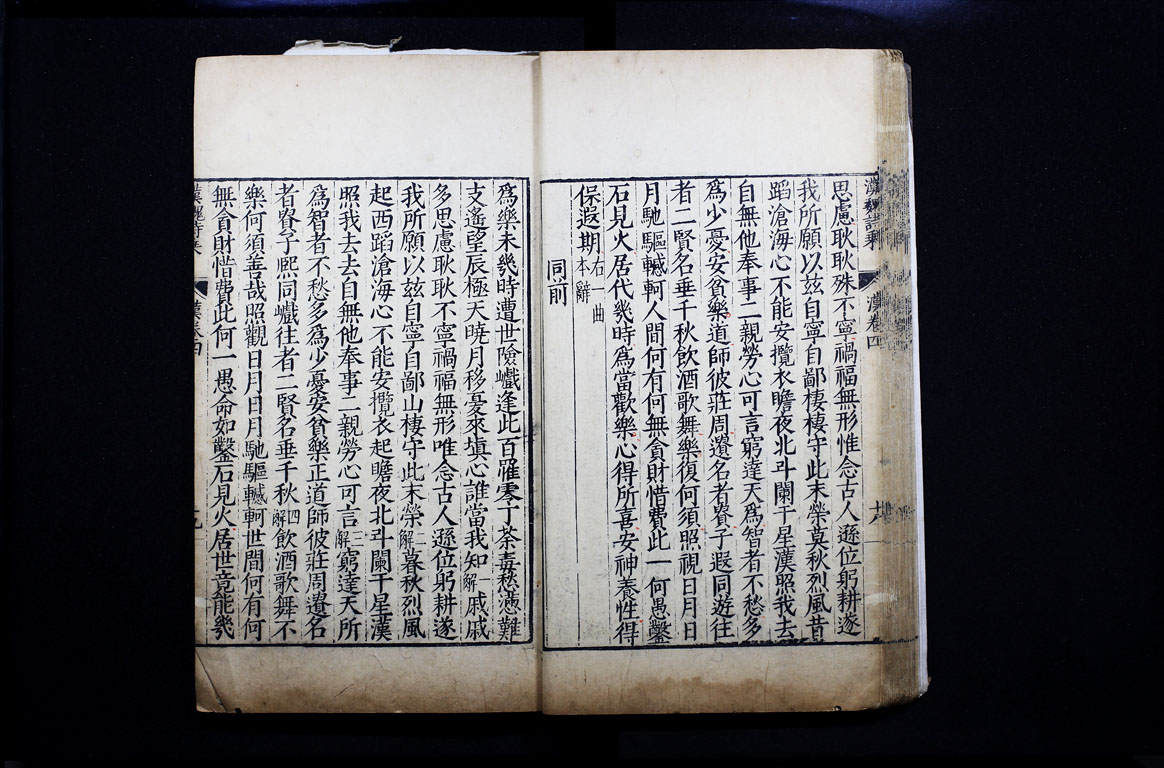 思慮耿耿殊不寧禍福無形惟念古人遜位躬耕遂
我所願以兹自寧自鄙棲棲守此末榮莫秋烈風昔
蹈滄海心不能安攬衣瞻夜北斗闌干星漢照我去
自無他奉事二親勞心可言窮達天為智者不愁多
為少憂安貧樂道師彼莊周遺名者賨子遐同遊往
者二賢名垂千秋飲酒歌舞樂復何須照視日月日
月馳驅轗軻人間何有何無貪財惜費此一何愚鑿
石見火居代幾時為當歡樂心得所喜安神養性得
保遐期右一曲本辭
同前
為樂未幾時遭世險巇逢此百罹零丁荼毒愁懣難
支遙望辰極天曉月移憂來塡心誰當我知一解戚戚
多思慮耿耿不寧禍福無形唯念古人遜位躬耕遂
我所願以兹自寧自鄙山棲守此末榮二解暮秋烈風
起西蹈滄海心不能安攬衣起瞻夜北斗闌干星漢
照我去去自無他奉事二親勞心可言三解窮達天所
為智者不愁多為少憂安貧樂正道師彼莊周遺名
者賨子熙同巇往者二賢名垂千秋四解飲酒歌舞不
樂何須善哉照觀日月日月馳驅轗軻世間何有何
無貪財惜費此何一愚命如鑿石見火居世竟能幾
漢卷四